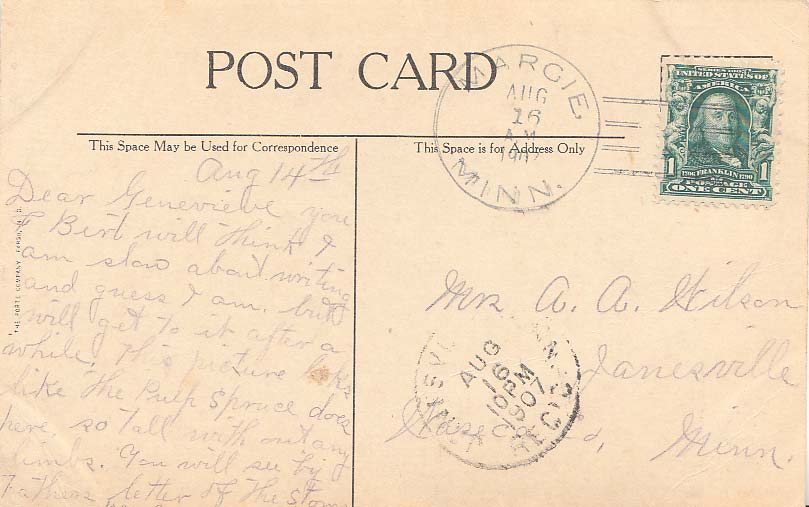 POST CARD
This Space May be Used for Correspondence
This Space is for Address Only
MARGIE,
AUG
16
A.M.
1907
MINN.
SERIES 1902
UNITED STATES OF
AMERICA
1706 FRANKLIN 1790
1 POSTAGE 1
ONE CENT
Aug 14th
Dear Genevieve you
& Bert will think I
am slow about writing
and guess I am. but
will get to it after a
while This picture looks
like the Pulp Spruce does
here so tall with out any
limbs. You will see by
Fathers letter of the storm
THE PORTE COMPANY, FARGO, N. D.
Mrs. A. A. Wilson
Janesville
Waseca Co, Minn.
AUG
16
10 PM
1907
REC'D